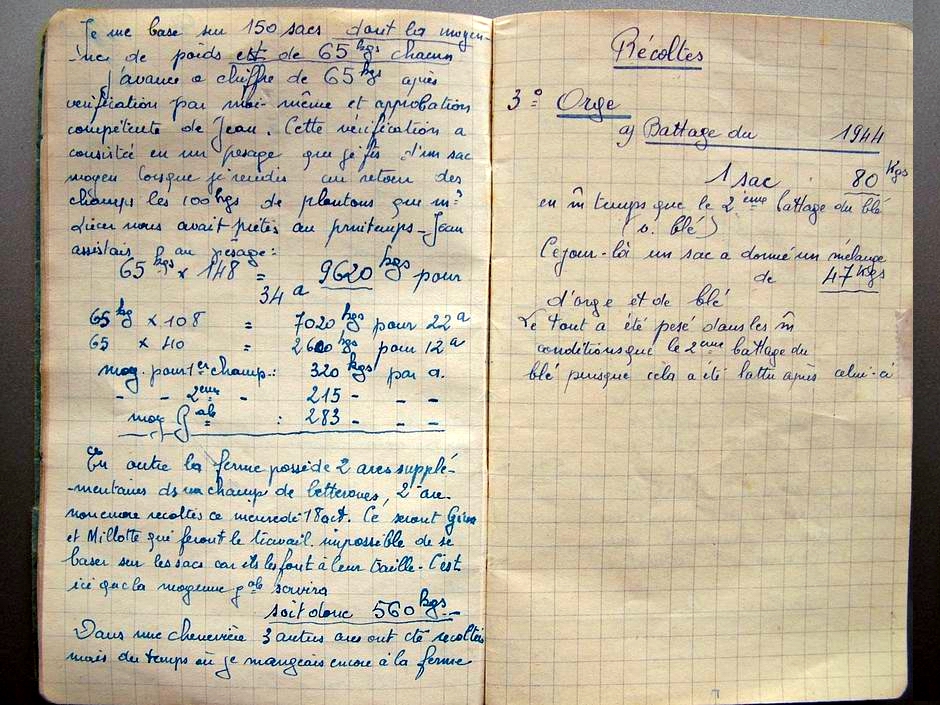 Je me base sur 150 sacs dont la moyen-
-ne de poids est de 65 kgs chacun
J'avance ce chiffre de 65 kgs après
vérification par moi-même et approbation
compétente de Jean. Cette vérification a
consisté en un pesage que je fis d'un sac
moyen lorsque je rendis au retour des
champs les 100 kgs de plantons que
nous avait prêtés au printemps - Jean
assistait au pesage :
65 kgs × 148 = 9620 kgs pour
34 a
65 kg × 108 = 7020 kgs pour 22 a
65 × 40 = 2600 kgs pour 12 a
moy. pour 1er champ : 320 kgs par a.
- - 2eme - 215 - - -
moy gale : 283 - - -
En outre la ferme possède 2 ares supplé-
-mentaires ds un champ de betteraves, 2 are
non encore récoltés ce mercredi 18 oct. Ce seront
et Millotte qui feront le travail. impossible de se
baser sur les sacs car ils les font à leur taille - C'est
ici que la moyenne gale servira
soit donc 560 kgs -
Dans une chenevière 3 autres ares ont été récoltés
mais du temps où je mangeais encore à la ferme
Récoltes
3° Orge
a) Battage du 1944
1 sac : 80 Kgs
en m̂ temps que le 2ieme battage du blé
(v. blé)
Ce jour-là un sac a donné un mélange
de 47 kgs
d'orge et de blé
Le tout a été pesé dans les m̂
conditions que le 2eme battage du
blé puisque cela a été battu après celui-ci